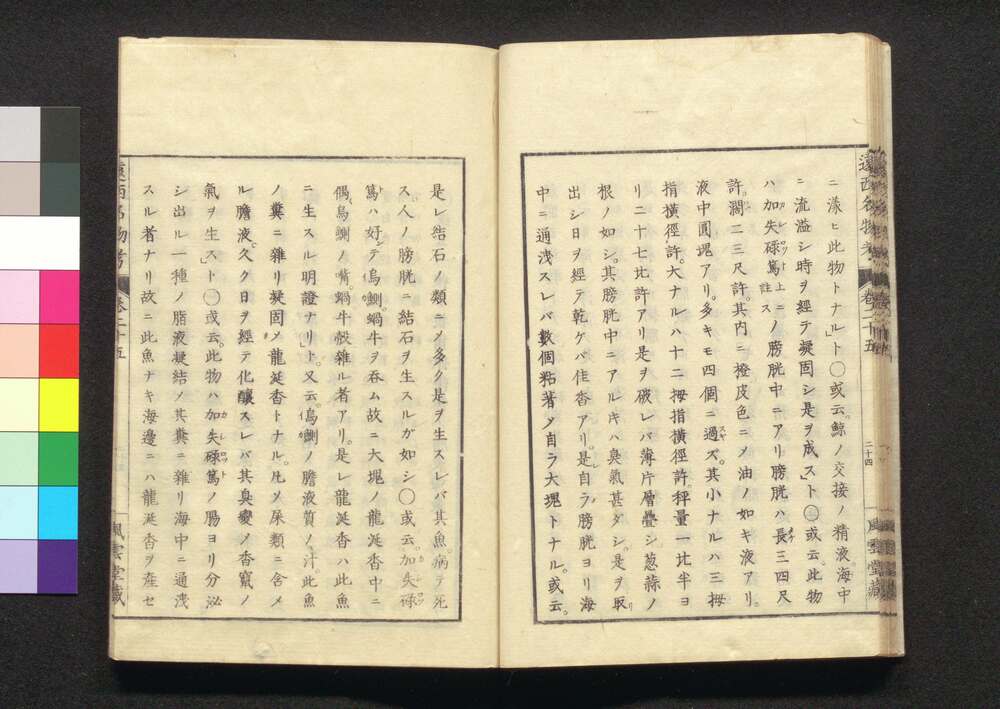 ニ漾ヒ此物トナル」ト〇或云。鯨ノ交接ノ精液海中
ニ流溢シ時ヲ經テ凝固シ是ヲ成ス」ト〇或云。此物
ハ加失碌篤上ニ註スノ膀胱中ニアリ膀胱ハ長三四尺
許。濶二三尺許。其内ニ橙皮色ニメ油ノ如キ液アリ。
液中圓塊アリ。多キモ四個ニ過ズ。其小ナルハ三拇
指横徑許。大ナルハ十二拇指横徑許。秤量一比半ヨ
リ二十七比許アリ是ヲ破レバ薄片層疊シ葱蒜ノ
根ノ如シ。其膀胱中ニアルキハ臭氣甚ダシ。是ヲ取
出シ日ヲ經テ乾ケバ佳香アリ。是自ラ膀胱ヨリ海
中ニ通洩スレバ數個粘著メ自ラ大塊トナル。或云。
遠西名物考 卷二十五
二十四
風雲堂藏
是レ結石ノ類ニメ多ク是ヲ生スレバ其魚。病テ死
ス。人ノ膀胱ニ結石ヲ生スルガ如シ〇或云。加失碌
篤ハ好ンデ烏鰂。蝸牛ヲ呑ム故ニ大塊ノ龍涎香中ニ
偶烏鰂ノ嘴。蝸牛殼雜ル者アリ。是レ龍涎香ハ此魚
ニ生スル明證ナリ」ト。又云。烏鰂ノ膽液質ノ汁此魚
ノ糞ニ雜リ凝固メ龍涎香トナル。凡ソ屎類ニ含メ
ル膽液。久ク日ヲ經テ化釀スレバ其臭變メ香竄ノ
氣ヲ生スト〇或云。此物ハ加失碌篤ノ腸ヨリ分泌
シ出ル一種ノ脂液凝結ノ其糞ニ雜リ海中ニ通洩
スル者ナリ故ニ此魚ナキ海邊ニハ龍涎香ヲ産セ
遠西名物考 卷二十五
風雲堂藏